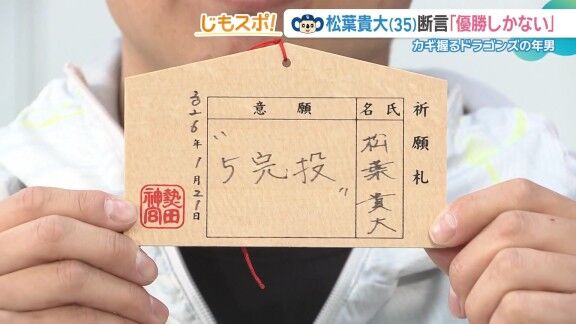 じもスポ!
松葉貴大(35)断言「優勝しかない」
カギ握るドラゴンズの年男
祈願札
氏名
松葉貴大
意願
"5完投"
2026年1月21日
熱田神宮